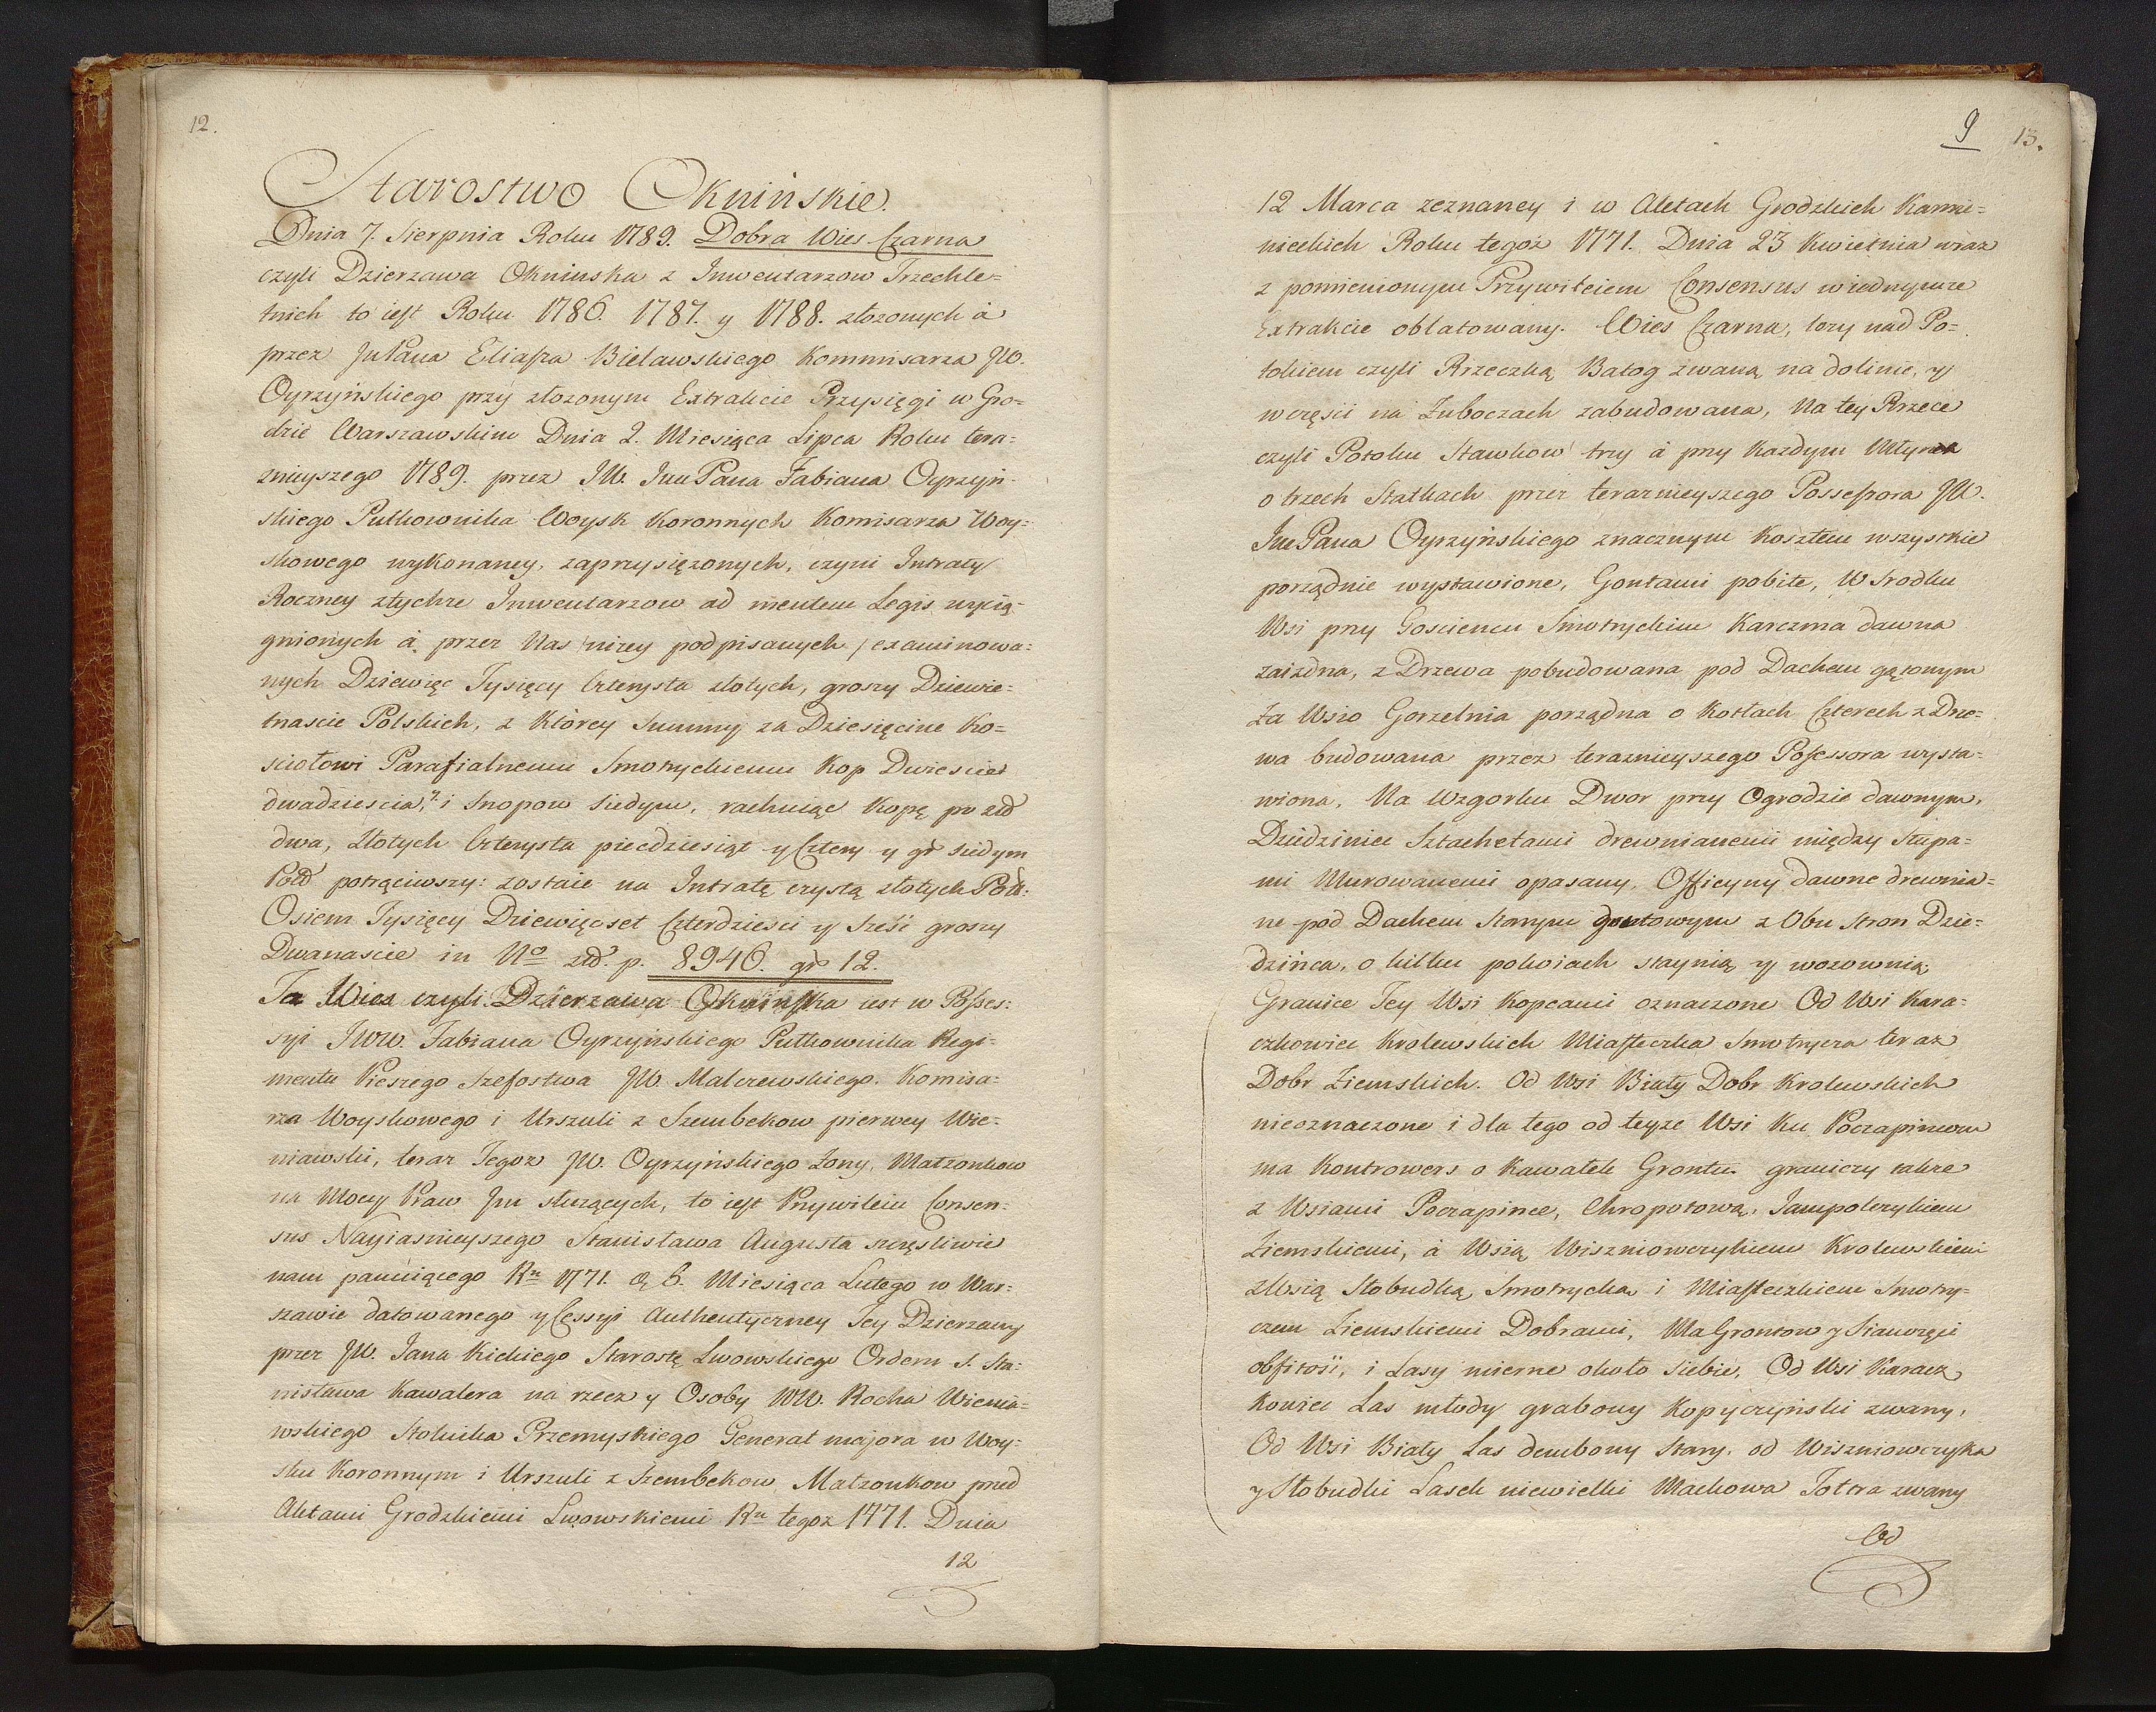 12.
Starostwo Oknińskie.
Dnia 7. Sierpnia Roku 1789. Dobra Wies Czarna
czyli Dzierzawa Okninska z Inwentarzow Trzechle=
tnich to iest Roku 1786. 1787. y 1788. złozonych à
przez JmPana Eliasza Bielawskiego Kommisarza JW.
Oyrzyńskiego przy złozonym Extrakcie Przysięgi w Gro=
dzie Warszawskim Dnia 2. Miesiąca Lipca Roku tera=
znieyszego 1789. przez JW. Jmć Pana Fabiana Oyrzyń-
skiego Pułkownika Woysk Koronnych Komisarza Woy=
skowego wykonaney, zaprzysięzonych, czyni Intraty
Roczney ztychze Inwentarzow ad mentem Legis wycią-
gnionych à przez Nas /nizey podpisanych/ examinowa=
nych Dziewięc Tysięcy Czterysta złotych, groszy Dziewię=
tnascie Polskich, z Którey Summy za Dziesięcine Ko=
sciołowi Parafialnemu Smotryckiemu Kop Dwiescie
dwadziescia,7 i Snopow Siedym, rachuiąc Kopę po złł
dwa, złotych Czterysta piecdziesiąt y Cztery y gr siedym
Pold potrąciwszy: zostaie na Intratę czystą złotych Poll:
Osiem Tysięcy Dziewięcset Czterdziesci y Sześć groszy
Dwanascie in No złł. p. 8946. gr 12.
Ta Wies czyli Dzierzawa Okninska iest w Posses:
syi JWW. Fabiana Oyrzyńskiego Pułkownika Regi=
mentu Pieszego Szefostwa JW. Malczewskiego. Komisa=
rza Woyskowego i Urszuli z Szembekow pierwey Wie=
niawski, teraz Tegoz JW. Oyrzyńskiego Zony, Małzonkow
na Mocy Praw Jm słuzących, to iest Przywileiu Consen=
sus Nayiasnieyszego Stanisława Augusta szczęsliwie
nam panuiącego Ru 1771. d. 6. Miesiąca Lutego w War=
szawie datowanego y Cessyi Authentyczney Tey Dzierzawy
przez JW. Jana Kickiego Starostę Lwowskiego Orderu S. Sta=
nisława Kawalera na rzecz y Osoby WW. Rocha Wienia=
wskiego Stolnika Przemyskiego Generał majora w Woy=
sku Koronnym i Urszuli z Szembekow Małzonkow przed
Aktami Grodzkiemi Lwowskiemi Ru tegoz 1771. Dnia
12
9 13.
12 Marca zeznaney i w Aktach Grodzkich Kamie=
nieckich Roku tegoz 1771. Dnia 23 Kwietnia wraz
z pomienionym Przywileiem Consensus wiednymze
Extrakcie oblatowany. Wies Czarna, lezy nad Po=
tokiem czyli Rzeczką Batog zwaną na dolinie, y
w częsci na Zuboczach zabudowana, Na tey Rzece
czyli Potoku Stawkow trzy à przy Kazdym Młynek
o trzech Statkach przez teraznieyszego Possessora JW.
Jmć Pana Oyrzyńskiego znacznym Kosztem wszystkie
porządnie wystawione, Gontami pobite, W Srodku
Wsi przy Gosciencu Smotryckim Karczma dawna
zaiezdna, z Drzewa pobudowana pod Dachem gątowym
Za Wsio Gorzelnia porządna o Kotłach Czterech z Drze=
wa budowana przez teraznieyszego Possessora wysta=
wiona. Na Wzgorku Dwor przy Ogrodzie dawnym,
Dziedziniec Sztachetami drewnianemi między Słupa=
mi Murowanemi opasany. Officyny dawne drewnia=
ne pod Dachem Starym gontowym z Obu Stron Dzie=
dzińca, o kilku pokoiach staynią y wozownią
Granice Tey Wsi Kopcami oznaczone Od Wsi Kara=
czkowiec Krolewskich Miasteczka Smotrycza teraz
Dobr Ziemskich. Od Wsi Biały Dobr Krolewskich
nieoznaczone i dla tego od teyze Wsi Ku Poczapincom
ma Kontrowers o Kawałek Grontu. graniczy takze
z Wsiami Poczapince, Chropotową, Jampolczykiem
Ziemskiemi, à Wsią Wiszniowczykiem Krolewskiemi
z Wsią Słobudką Smotrycką i Miasteczkiem Smotry=
czem Ziemskiemi Dobrami, Ma Grontow y Sianozęci
obfitość, i Lasy mierne około siebie, Od Wsi Karacz
kowiec Las młody grabowy Kopyczyński zwany,
Od Wsi Biały Las dembowy Stary, od Wiszniowczyka
y Słobudki Lasek niewielki Machowa Toltra zwany
Od